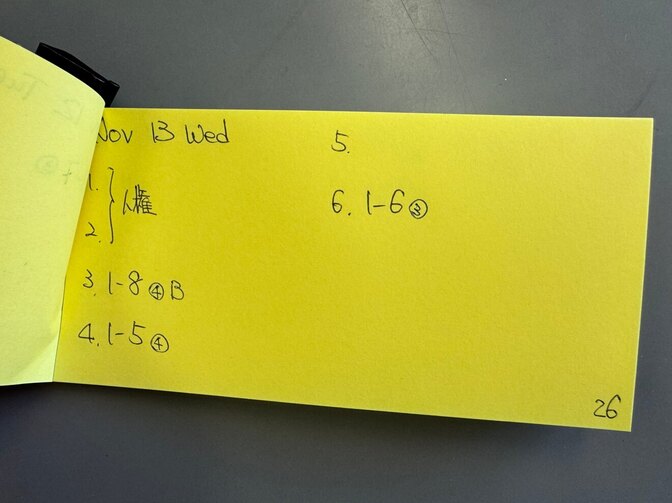 Nov 13 Wed
1.
2. 人権
3. 1-8 ④ B
4. 1-5 ④
5.
6. 1-6 ③
26